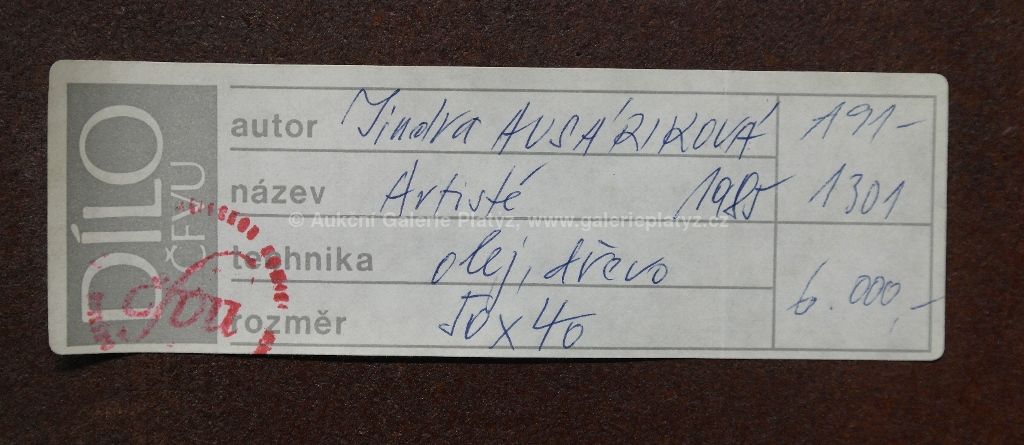 DÍLO
ČFVU
autor Jindra AUSÁRIKOVÁ 191-
název Artisté 1985 1301
© Aukční Galerie Platýz, www.galerieplatyz.cz
technika olej, dřevo
6.000,-
rozměr 50 x 40